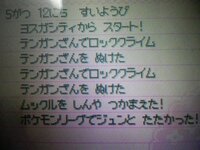 5がつ 12にち すいようび
ヨスガシティから スタート!
テンガンざんでロッククライム
テンガンざんを ぬけた
テンガンざんでロッククライム
テンガンざんを ぬけた
ムックルを しんや つかまえた!
ポケモンリーグでジュンと たたかった!